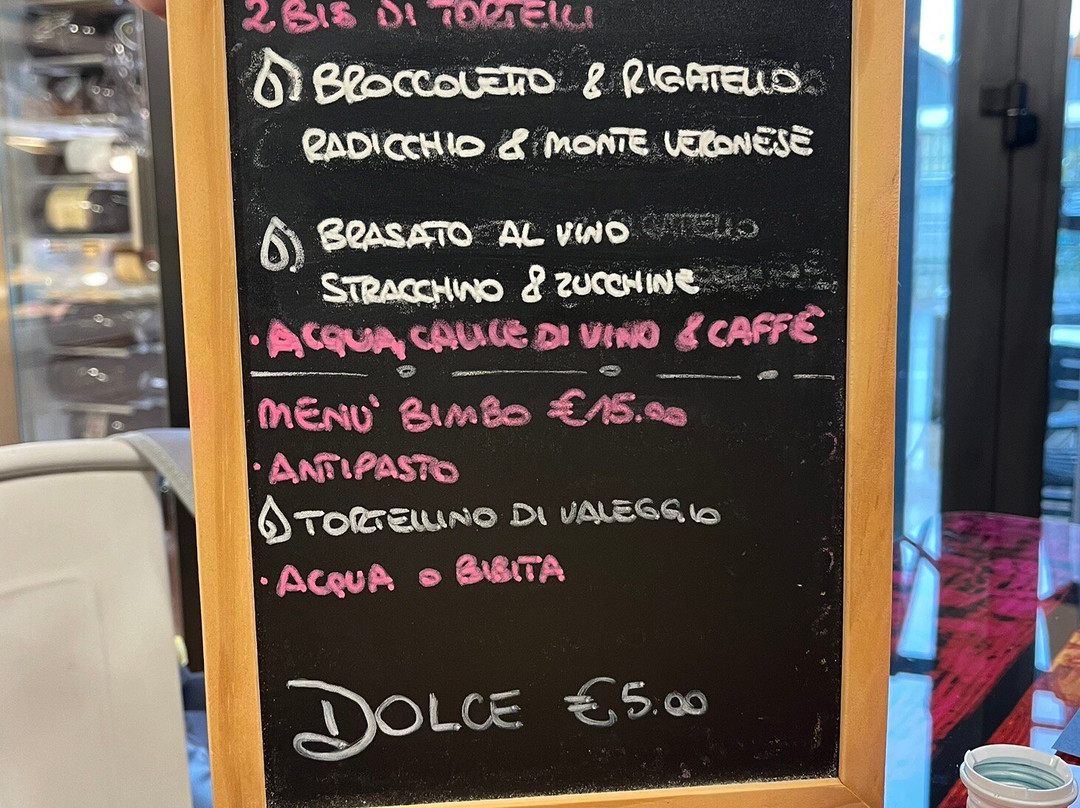 2 BIS DI TORTELLI
BROCCOLETTO & RIGATELLO
RADICCHIO & MONTE VERONESE
BRASATO AL VINO
STRACCHINO & ZUCCHINE
· ACQUA, CALICE DI VINO & CAFFÈ
MENU' BIMBO €15.00
· ANTIPASTO
TORTELLINO DI VALEGGIO
· ACQUA O BIBITA
DOLCE €5.00